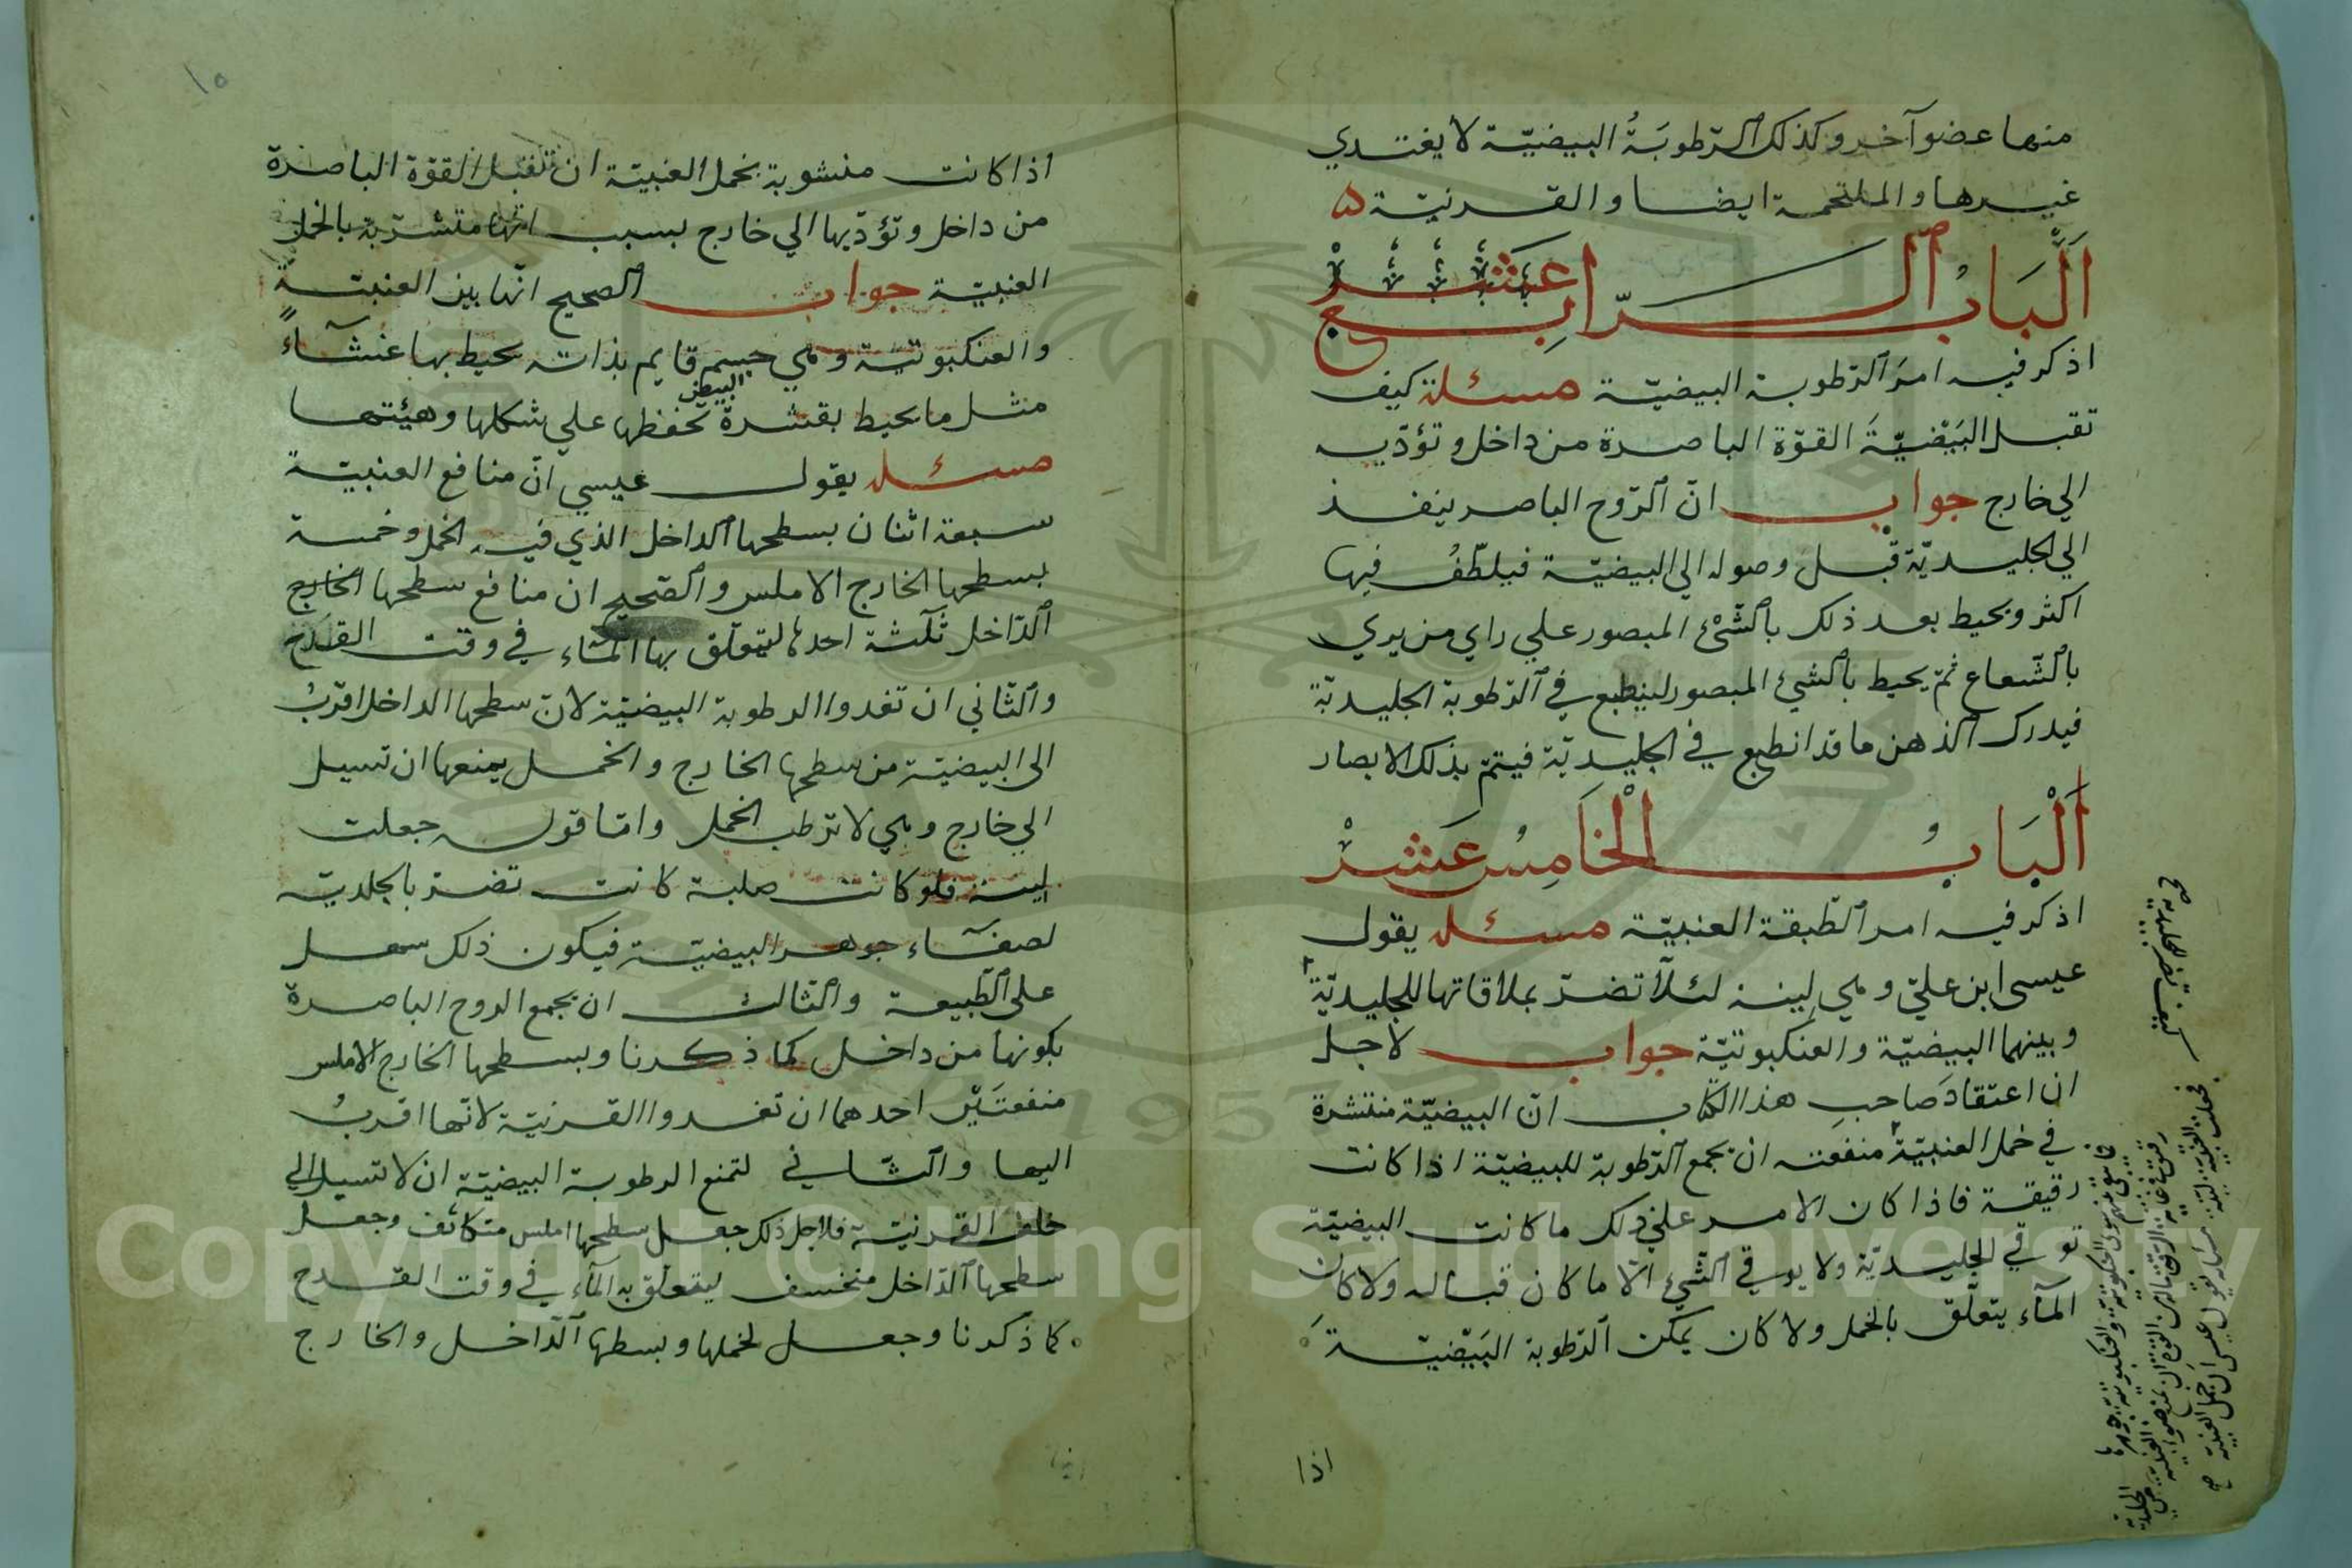 منها عضو آخر وكذلك الرّطوبَةُ البيضيّة لا يغتدي
غيرها والملتحمة ايضا والقرنيّة ۵
اَلْبَابُ الرّابِع عَشَرْ
اذكر فيه امرَ الرّطوبة البيضيّة مسئلة كيف
تقبل البَيْضيَّةَ القوّة الباصرة من داخل وتؤدّيه
الي خارج جواب انّ الرّوح الباصر ينفذ
الي الجليديّة قبل وصوله الي البيضيّة فيلطّفُ فيها
اكثر ويحيط بعد ذلك بالشّئ المبصور علي راي من يري
بالشّعاع ثمّ يحيط بالشئ المبصور لينطبع في الرّطوبة الجليديّة
فيدرك الذهن ما قد انطبع في الجليديّة فيتمّ بذلك الابصار
اَلْبَابُ الْخَامِسُ عَشَرْ
اذكر فيه امر الطّبقة العنبيّة مسئله يقول
عيسى ابن عليّ وهي لينة لئلّا تضرّ بملاقاتها للجليديّة
وبينهما البيضيّة والعنكبوتيّة جواب لاجل
ان اعتقادَ صاحبِ هذا الكتاب انّ البيضيّة منتشرة
في خمل العنبيّة منفعته ان يجمع الرّطوبة للبيضيّة اذا كانت
رقيقة فاذا كان الامر علي ذلك ما كانت البيضيّة
توقي للجليديّة ولا يوقي الشّئ الّا ما كان قباله ولا كان
المآء يتعلّق بالخمل ولا كان يمكن الرّطوبة البَيْضيّةَ
اذا
١٥
اذا كانت منشوبة بخمل العنبيّة ان تقبل القوّة الباصرة
من داخل وتؤدّيها الي خارج بسبب انّها متشرّبة بالخمل
العنبيّة جواب الصحيح انّها بين العنبيّة
والعنكبوتيّة وهي جسم قايم بذاته يحيط بها غشآءً
مثل ما يحيط بقشرة البيض تحفظها علي شكلها وهيئتها
مسئله يقول عيسي انّ منافع العنبيّة
سبعة اثنان بسطحها الداخل الذي فيه الخمل وخمسة
بسطحها الخارج الاملس والصّحيح ان منافع سطحها الخارج
الدّاخل ثلٰثة احدها ليتعلّق بها المآء في وقت القدح
والثّاني ان تغدوا الرطوبة البيضيّة لانّ سطحها الداخل اقربُ
الى البيضيّة من سطحها الخارج والخمل يمنعها ان تسيل
الي خارج وهي لا ترطب الخمل وامّا قوله جعلت
لينة فلو كانت صلبة كانت تضرّ بالجلديّه
لصفآء جوهر البيضيّة فيكون ذلك سهل
على الطّبيعة والثّالث ان يجمع الروح الباصرة
بكونها من داخل كما ذكرنا وبسطحها الخارج الاملس
منفعتَيْن احدهما ان تغدوا القرنيّة لانّها اقربُ
اليها والثّاني لتمنع الرطوبة البيضيّة ان لا تسيل الي
خلف القرنيّة فلاجل ذلك جعل سطحها املس متكاثف وجعل
سطحها الدّاخل منخسف ليتعلّق به المآء في وقت القدح
كما ذكرنا وجعل لخملها وبسطها الدّاخل والخارج